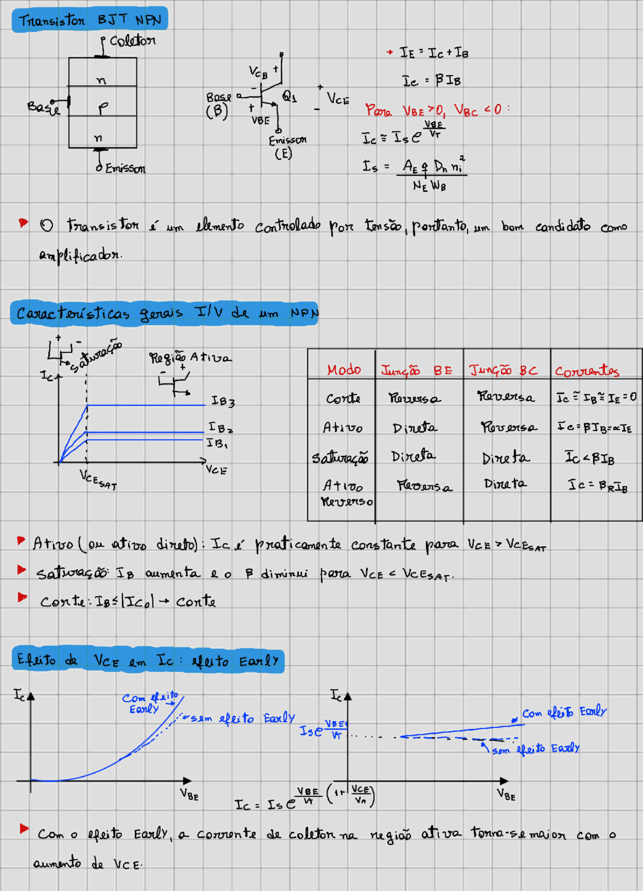 Transistor BJT NPN
Coletor
n
Base
p
n
Emissor
VCB +
-
Base
(B)
+
VBE
Q1
+
VCE
-
Emissor
(E)
• IE = IC + IB
IC = βIB
Para VBE > 0, VBC < 0:
IC ≅ IS e^(VBE/VT)
IS = AE q Dn ni² / NE WB
▶ O transistor é um elemento controlado por tensão, portanto, um bom candidato como
amplificador.
Características gerais I/V de um NPN
+ -
Saturação
Região Ativa
+ -
IC
IB3
IB2
IB1
VCESAT
VCE
Modo Junção BE Junção BC Correntes
Corte Reversa Reversa IC ≅ IB ≅ IE = 0
Ativo Direta Reversa IC = βIB = αIE
Saturação Direta Direta IC < βIB
Ativo Reverso Reversa Direta IC = βR IB
▶ Ativo (ou ativo direto): IC é praticamente constante para VCE > VCESAT
▶ Saturação: IB aumenta e o β diminui para VCE < VCESAT.
▶ Corte: IB ≤ |IC0| → corte
Efeito de VCE em IC: efeito Early
IC
Com efeito
Early
sem efeito Early
VBE
IC
IS e^(VBE/VT)
Com efeito Early
sem efeito Early
VBE
IC = IS e^(VBE/VT) (1 + VCE/VA)
▶ Com o efeito Early, a corrente de coletor na região ativa torna-se maior com o
aumento de VCE.